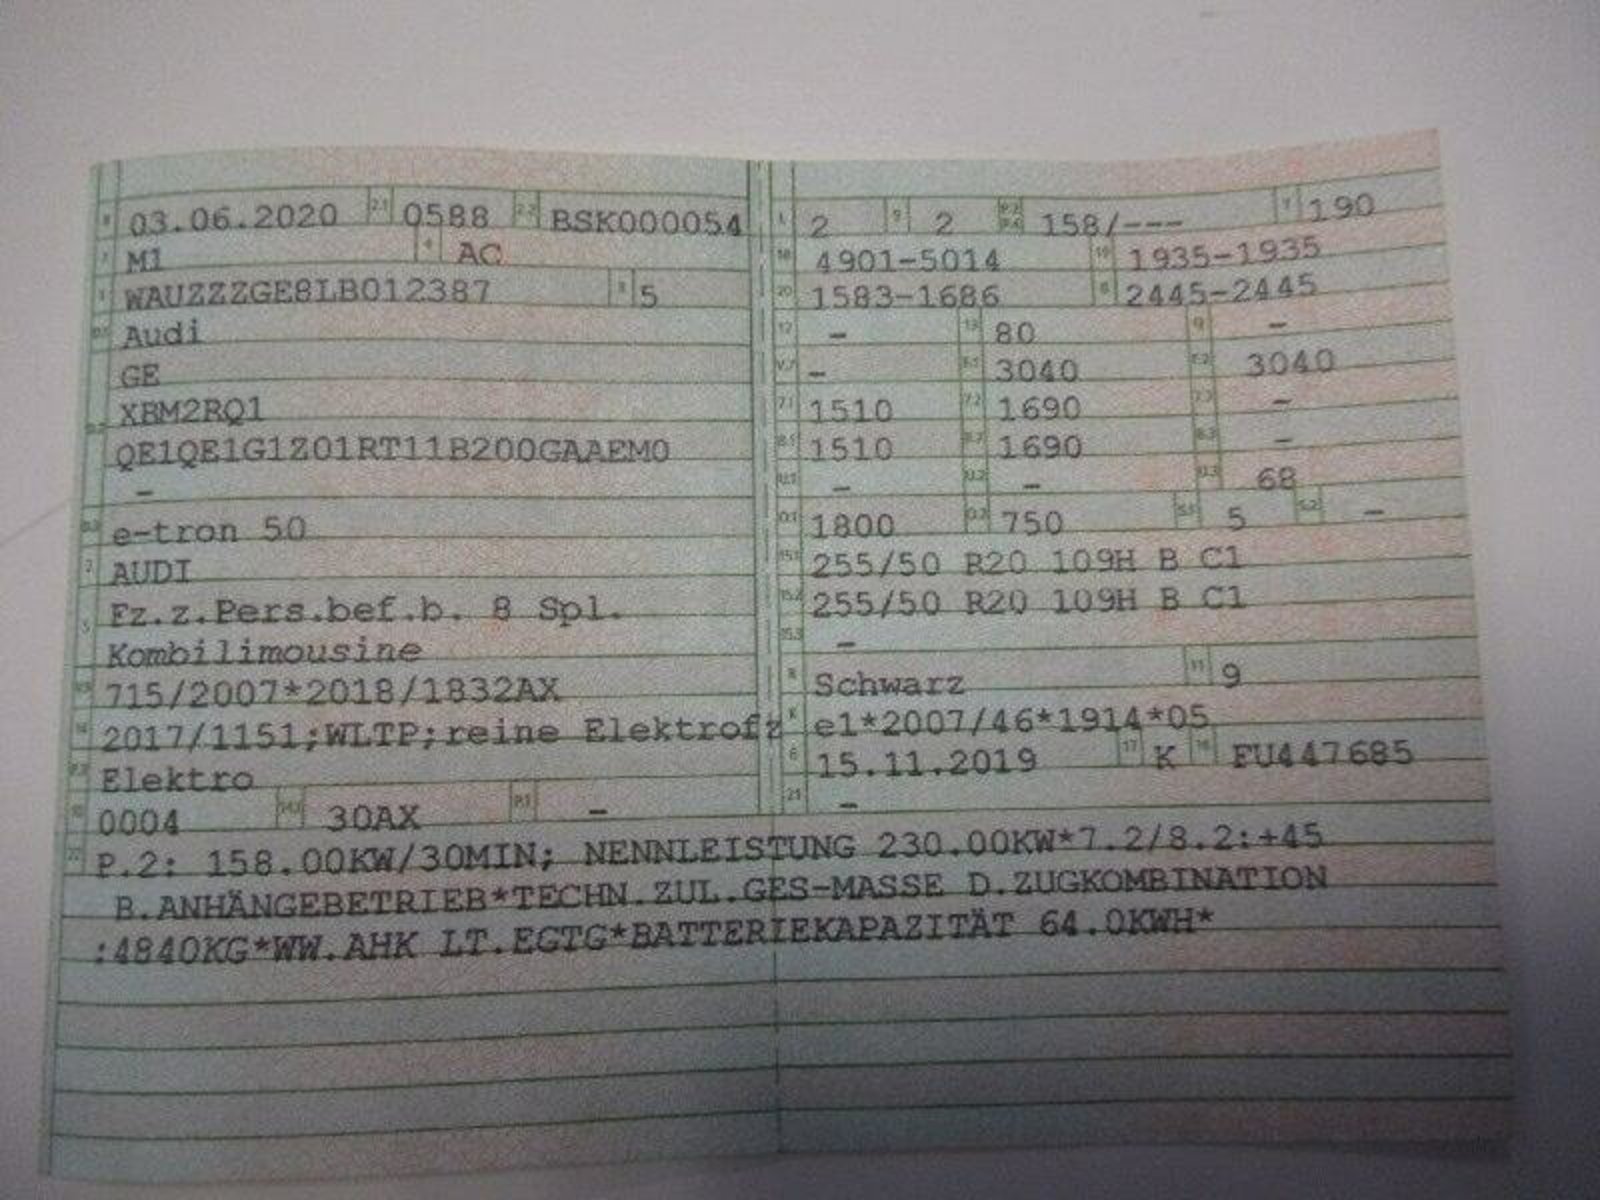 03.06.2020 2.1 0588 2.2 BSK000054
M1 4 AC
WAUZZZGE8LB012387 3 5
D.1 Audi
GE
XBM2RQ1
QE1QE1G1Z01RT11B200GAAEM0
-
D.3 e-tron 50
2 AUDI
Fz.z.Pers.bef.b. 8 Spl.
5 Kombilimousine
715/2007*2018/1832AX
2017/1151;WLTP;reine Elektrofz
P.3 Elektro
10 0004 14.1 30AX P.1 -
L 2 9 2 P.2 P.4 158/--- T 190
18 4901-5014 19 1935-1935
20 1583-1686 G 2445-2445
12 - 13 80 Q -
V.7 - F.1 3040 F.2 3040
7.1 1510 7.2 1690 7.3 -
8.1 1510 8.2 1690 8.3 -
U.1 - U.2 - U.3 68
O.1 1800 O.2 750 S.1 5 S.2 -
15.1 255/50 R20 109H B C1
15.2 255/50 R20 109H B C1
15.3 -
R Schwarz 11 9
K e1*2007/46*1914*05
6 15.11.2019 17 K 16 FU447685
21 -
22 P.2: 158.00KW/30MIN; NENNLEISTUNG 230.00KW*7.2/8.2:+45
B.ANHÄNGEBETRIEB*TECHN.ZUL.GES-MASSE D.ZUGKOMBINATION
:4840KG*WW.AHK LT.EGTG*BATTERIEKAPAZITÄT 64.0KWH*